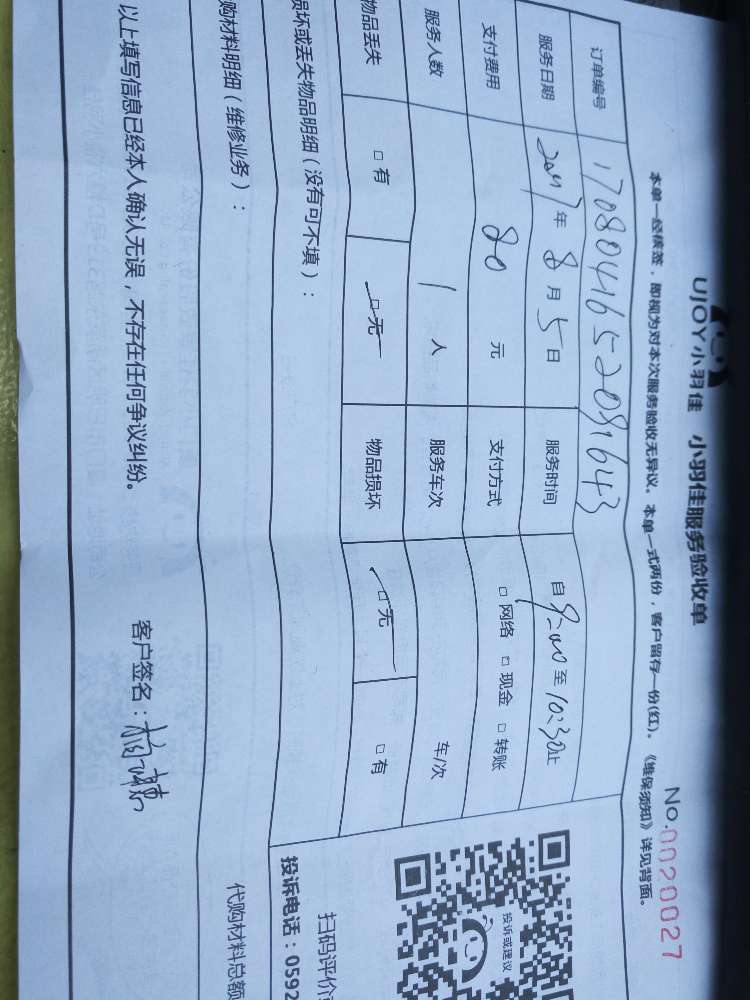 UJOY小羽佳 小羽佳服务验收单
No.0020027
本单一经核签，即视为对本次服务验收无异议。本单一式两份，客户留存一份(红)。《维保须知》详见背面。
订单编号 1708041652081643
服务日期 2017年8月5日 服务时间 自9:00至10:30止
支付费用 80元 支付方式 □网络 □现金 □转账
服务人数 1人 服务车次 车/次
物品丢失 □有 □无 物品损坏 □无 □有
损坏或丢失物品明细（没有可不填）：
购材料明细（维修业务）：
代购材料总额
以上填写信息已经本人确认无误，不存在任何争议纠纷。
客户签名：
投诉或建议
扫码评价
投诉电话：0592